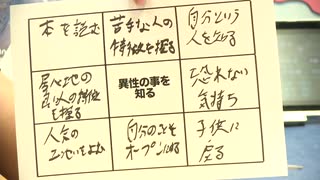 本を読む
苦手な人の
特徴を握る
自分という
人を知る
居心地の
良い人の特徴
を握る
異性の事を
知る
恐れない
気持ち
人気の
エッセイをよむ
自分のことを
オープンにする
子供に
戻る